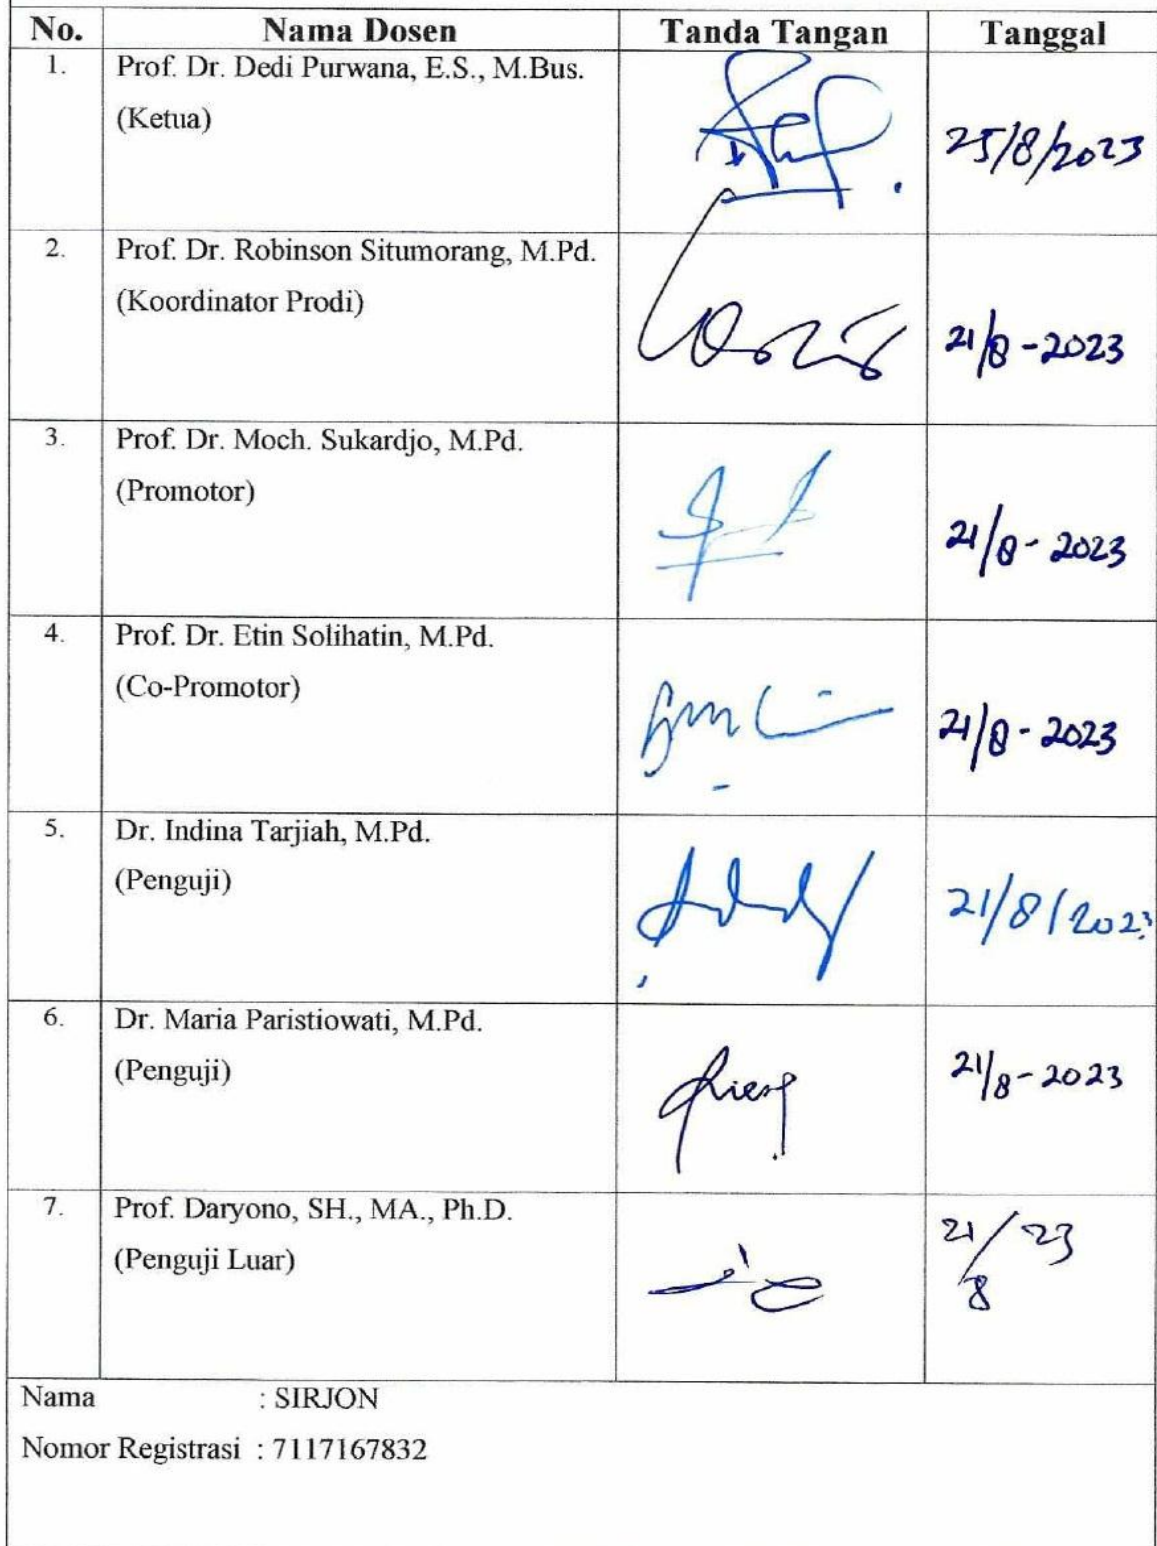 No. Nama Dosen Tanda Tangan Tanggal
1. Prof. Dr. Dedi Purwana, E.S., M.Bus.
(Ketua)
25/8/2023
2. Prof. Dr. Robinson Situmorang, M.Pd.
(Koordinator Prodi)
21/8-2023
3. Prof. Dr. Moch. Sukardjo, M.Pd.
(Promotor)
21/8-2023
4. Prof. Dr. Etin Solihatin, M.Pd.
(Co-Promotor)
21/8-2023
5. Dr. Indina Tarjiah, M.Pd.
(Penguji)
21/8/2023
6. Dr. Maria Paristiowati, M.Pd.
(Penguji)
21/8-2023
7. Prof. Daryono, SH., MA., Ph.D.
(Penguji Luar)
21/8 23
Nama : SIRJON
Nomor Registrasi : 7117167832